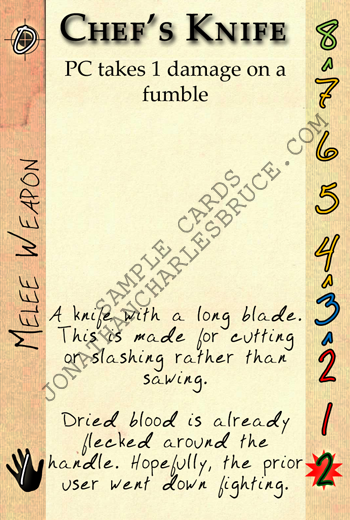 CHEF'S KNIFE
PC takes 1 damage on a
fumble
MELEE WEAPON
SAMPLE CARDS
JONATHANCHARLESBRUCE.COM
A knife with a long blade.
This is made for cutting
or slashing rather than
sawing.
Dried blood is already
flecked around the
handle. Hopefully, the prior
user went down fighting.
D
8
7
6
5
4
3
2
1
2